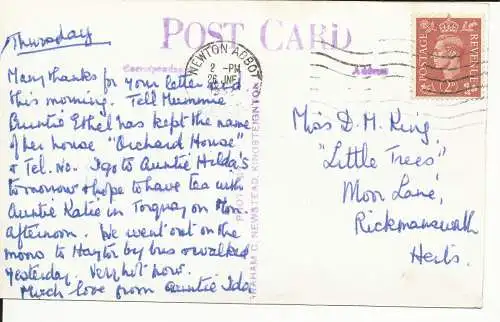 Thursday
POST CARD
Correspondence
Address
NEWTON ABBOT
2 - PM
26 JNE
POSTAGE
REVENUE
2D
Many thanks for your letter recd
this morning. Tell Mummie
Auntie Ethel has kept the name
of her house "Orchard House"
& Tel. No. I go to Auntie Hilda's
tomorrow & hope to have tea with
Auntie Katie in Torquay on Mon
afternoon. We went out on the
moro to Haytor by bus & walked
yesterday. Very hot now.
Much love from Auntie Ida
Miss D. M. King,
"Little Trees"
Moor Lane,
Rickmansworth
Herts.
NEWSTEAD, KINGSTEIGNTON